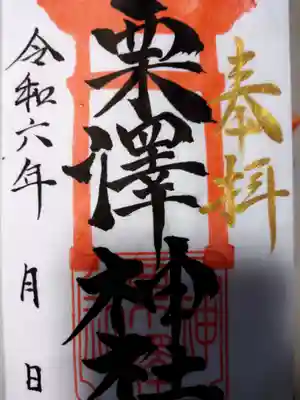 奉拝
栗澤神社
令和六年 月 日